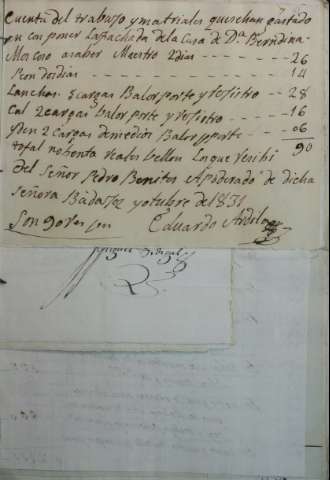 Cuenta del trabajo y matriales que se han gastado
en con poner La fachada de la Casa de Dª Berndina
Moscoso a saber Maestro 2 dias - - - - - 26
Peon dos dias - - - - - - 14
Lanchas 5 cargas Balor porte y rejistro - - 28
Cal 2 cargas balor porte y rejistro - - - 16
y den 2 cargas de medios Balor y porte - - 06
total nobenta reales bellon Lo que Resibi 90
del Señor Pedro Benites Apoderado de dicha
Señora Badajoz y otubre de 1831
Son 90 rs
Eduardo